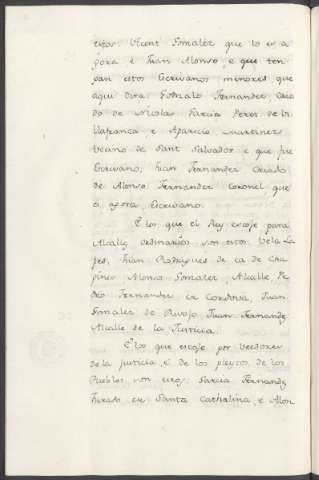 estos: Vicent Gonzalez que lo es a
gora e Juan Alonso, e que ten
gan estos Escrivanos menores que
aqui dira: Gonzalo Fernandez Cria
do de Nicolas Garcia Perez de Vi
llafranca e Aparicio Martinez
vecino de Sant Salvador e que fue
Escrivano; Juan Fernandez Criado
de Alonso Fernandez Coronel que
es agora Escrivano.
E los que el Rey escoje para
Alcalles ordinarios son estos: Vela Lo
pez, Juan Rodriguez de ca de Cha
pines Alonso Gonzalez, Alcalle, Pe
dro Fernandez en Cordova, Juan
Gonzalez de Ruvio, Juan Fernandez
Alcalle de la Justicia.
E los que escoje por Veedores
de la justicia, é de los pleytos de los
Pueblos son estos: Garcia Fernandez
Jurado en Santa Cathalina, e Alon